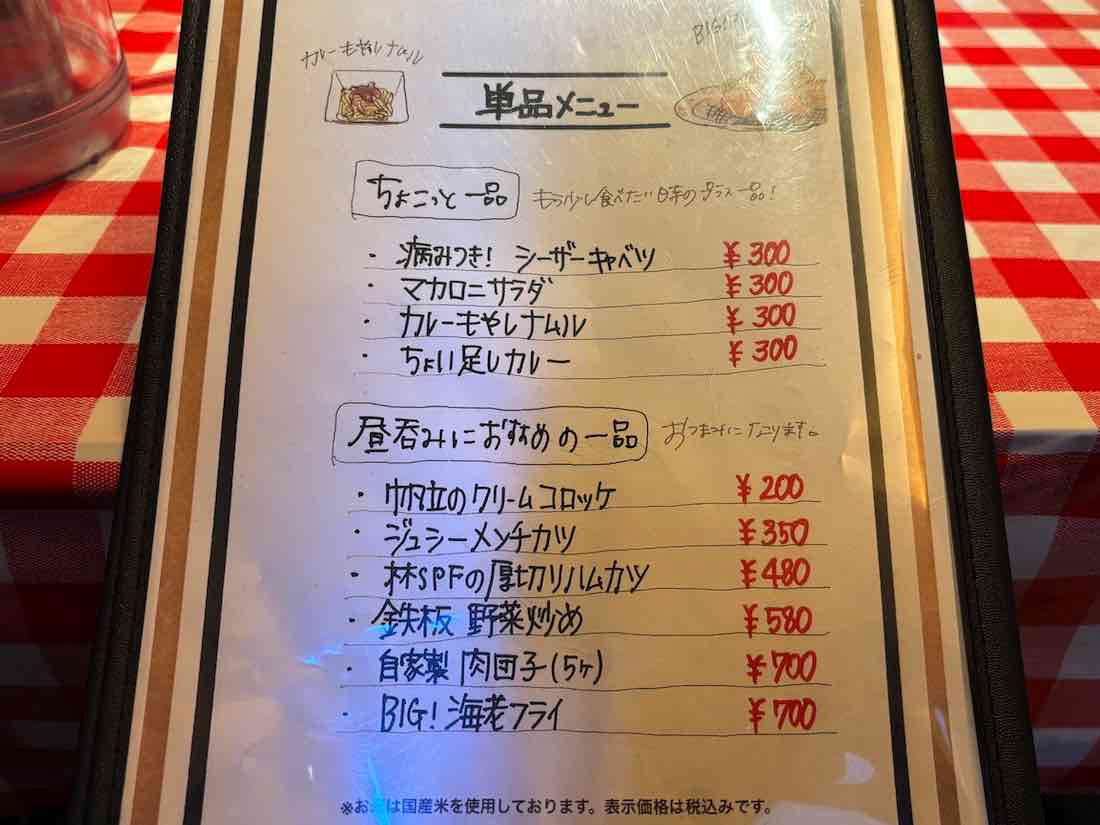 カレーもやしナムル
BIG!
単品メニュー
ちょこっと一品
もう少し食べたい日本のプラス一品!
・病みつき! シーザーキャベツ ¥300
・マカロニサラダ ¥300
・カレーもやしナムル ¥300
・ちょい足しカレー ¥300
昼呑みにおすすめの一品
おつまみになります。
・帆立のクリームコロッケ ¥200
・ジュシーメンチカツ ¥350
・林SPFの厚切りハムカツ ¥480
・鉄板 野菜炒め ¥580
・自家製 肉団子(5ヶ) ¥700
・BIG! 海老フライ ¥700
※お は国産米を使用しております。表示価格は税込みです。